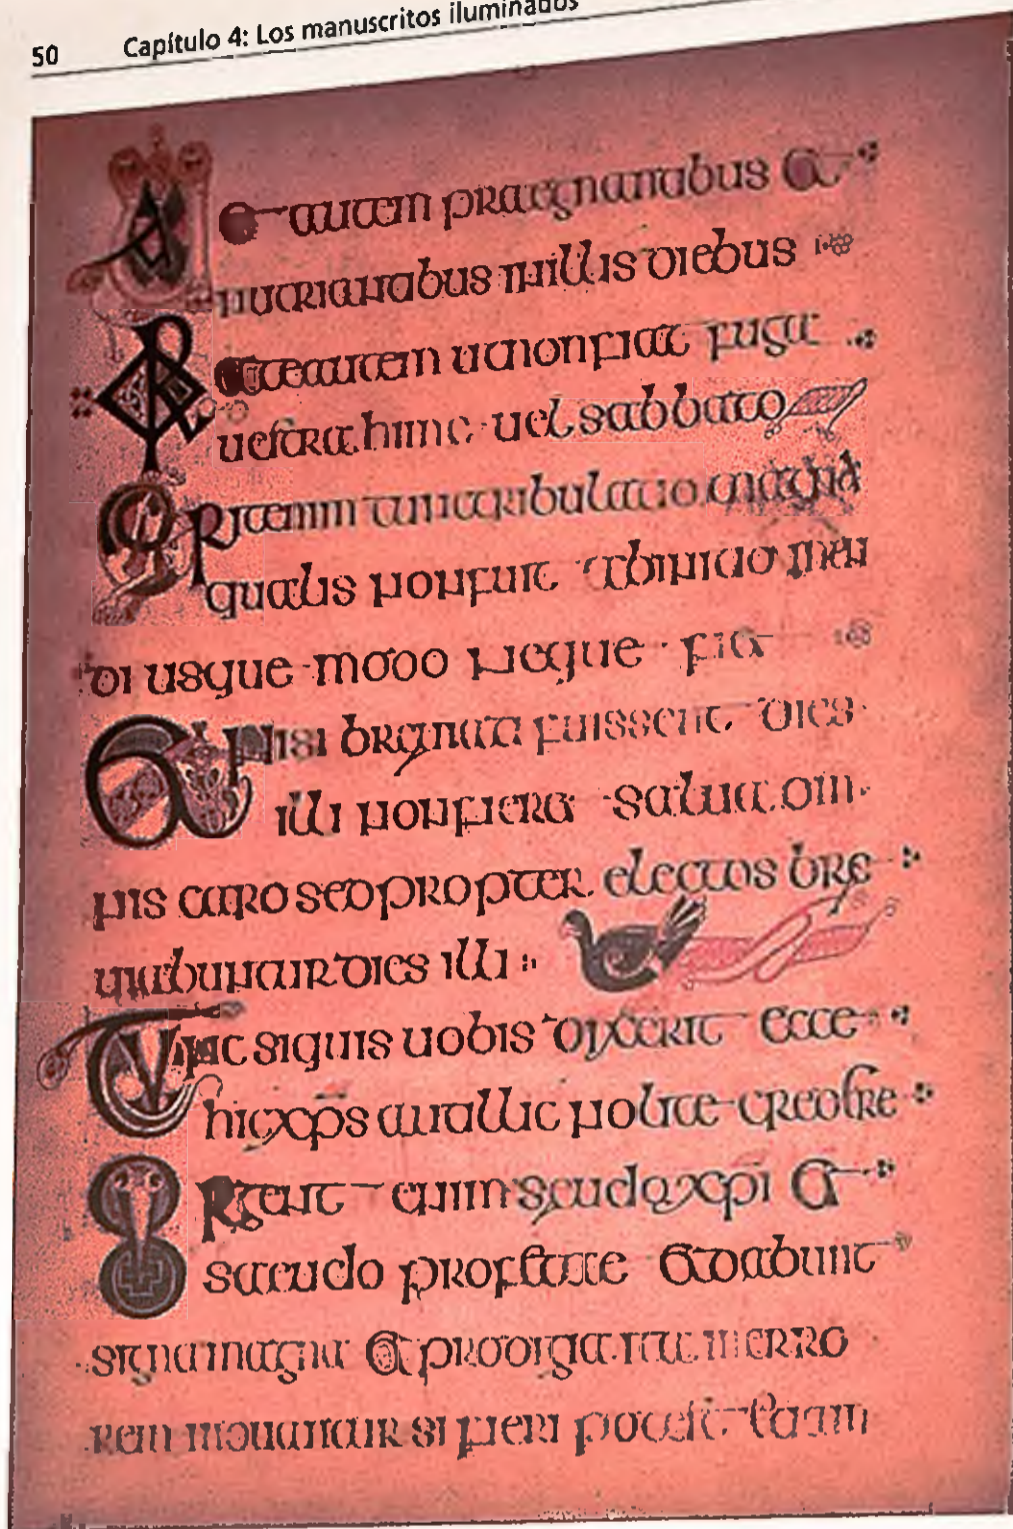 50 Capítulo 4: Los manuscritos iluminados
Uae autem praegnantibus et
nutrientibus in illis diebus
Orate autem ut non fiat fuga
uestra hieme uel sabbato
Erit enim tunc tribulatio magna
qualis non fuit ab initio mun
di usque modo neque fiet
Et nisi breuiati fuissent dies
illi non fieret salua om
nis caro sed propter electos bre
uiabuntur dies illi
Tunc siquis uobis dixerit ecce
hic xps aut illic nolite credere
surgent enim seudo xpi et
seudo profetae et dabunt
signa magna et prodigia ita in erro
rem mouantur si fieri potest etiam